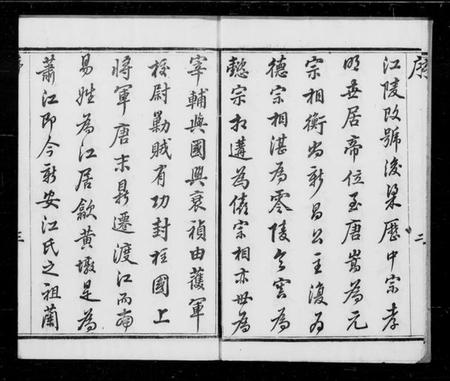 序
江陵改號後梁歷中宗孝
明世居帝位至唐嵩為元
宗相衡尚新昌公主復為
德宗相湛為零陵令寘為
懿宗相遘為僖宗相亦世為
二
宰輔與國興衰禎由護軍
校尉勦賊有功封柱國上
將軍唐末鼎遷渡江而南
易姓為江居歙黃墩是為
蕭江即今新安江氏之祖蘭
三